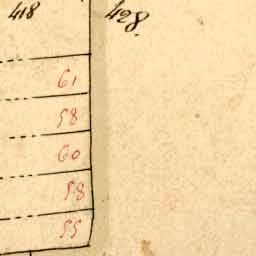 418 428.
61
58
60
58
55